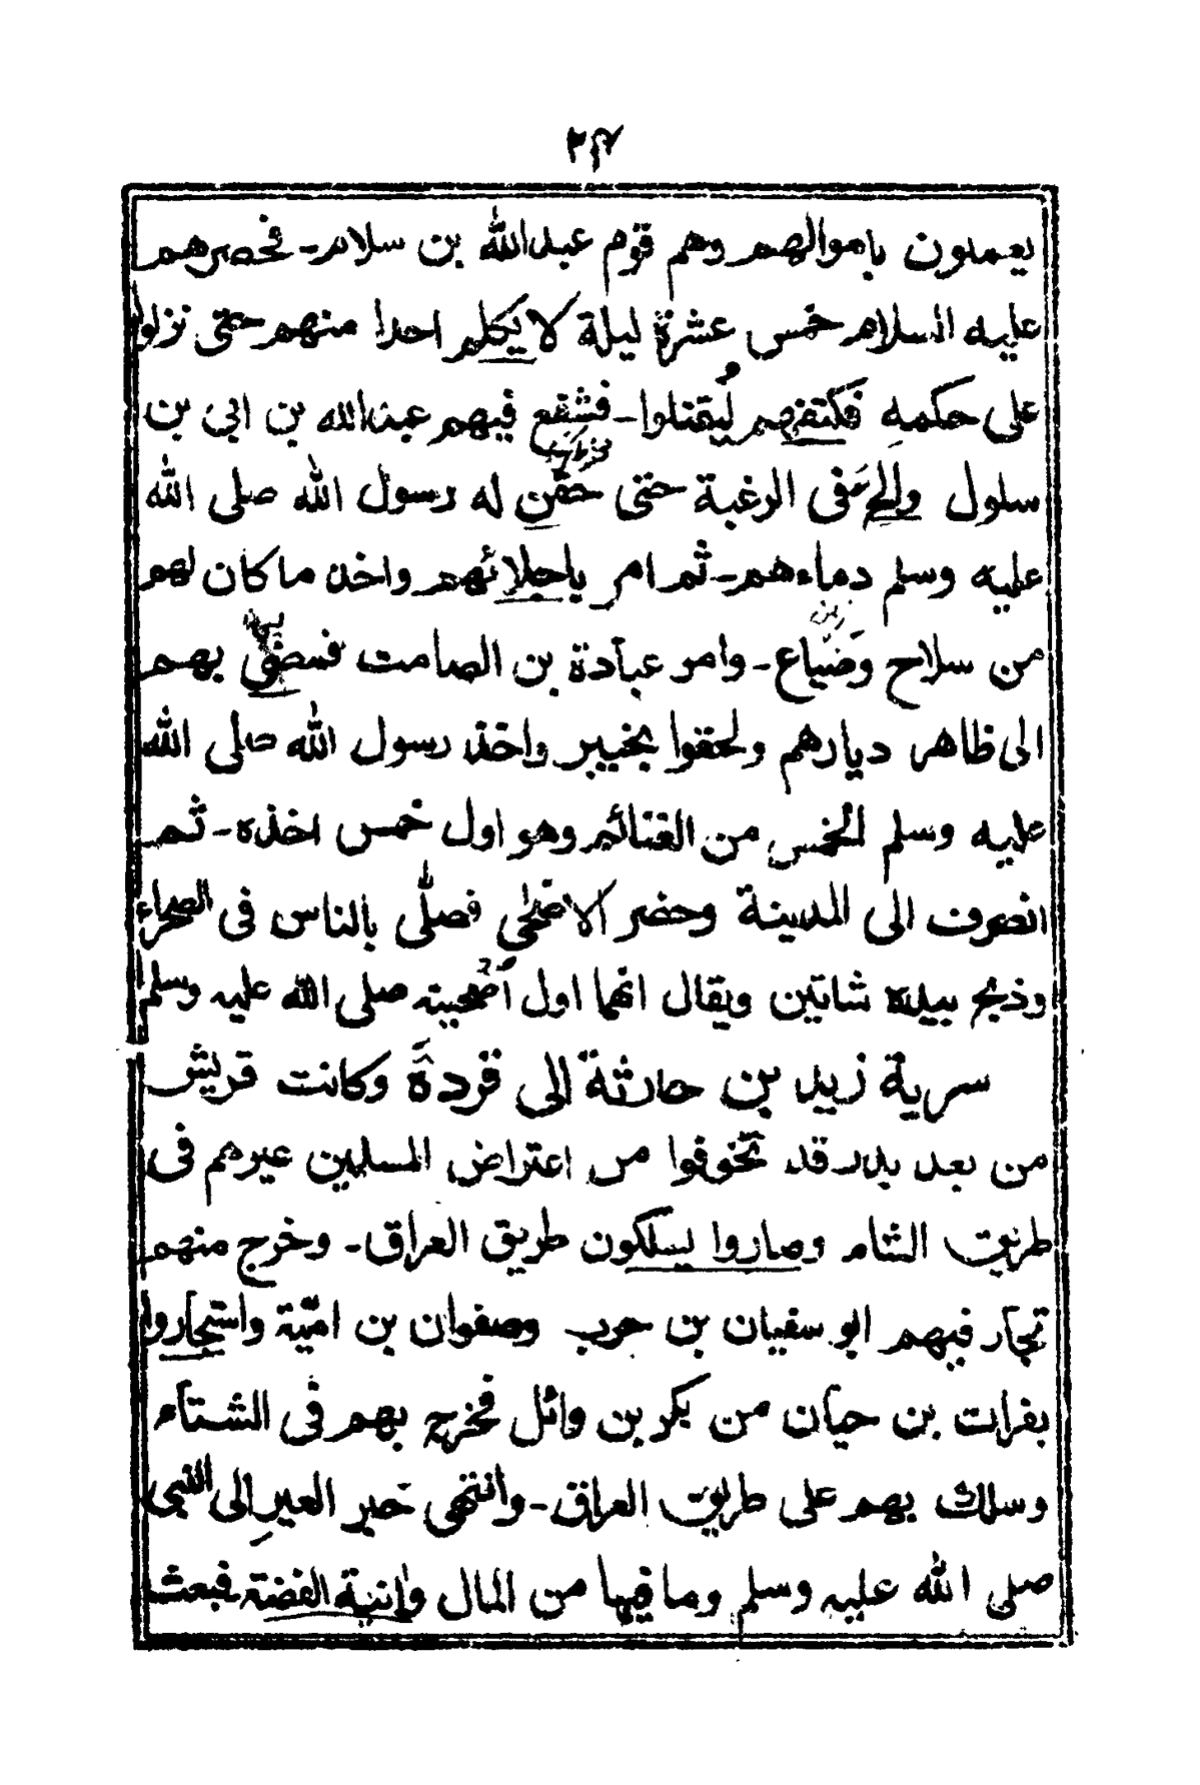 يعملون باموالهم وهم قوم عبدالله بن سلام ـ فحصرهم
عليه السلام خمس عشرة ليلة لا يكلم احدا منهم حتى نزلوا
على حكمه فكتفهم لُيقتلوا ـ فشفع فيهم عبدالله بن ابى بن
سلول والح فى الرغبة حتى حقن له رسول الله صلى الله
عليه وسلم دماءهم ـ ثم امر باجلائهم واخذ ما كان لهم
من سلاح وضياع ـ وامر عبادة بن الصامت فمضى بهم
الى ظاهر ديارهم ولحقوا بخيبر واخذ رسول الله صلى الله
عليه وسلم الخمس من الغنائم وهو اول خمس اخذه ـ ثم
انصرف الى المدينة وحضر الاضحى فصلّى بالناس فى الصحراء
وذبح بيده شاتين ويقال انهما اول اُضحيته صلى الله عليه وسلم
سرية زيد بن حارثة الى قردة وكانت قريش
من بعد بدر قد تخوفوا من اعتراض المسلمين عيرهم فى
طريق الشام وصاروا يسلكون طريق العراق ـ وخرج منهم
تجار فيهم ابو سفيان بن حرب وصفوان بن اميّة واستجاروا
بفرات بن حيان من بكر بن وائل فخرج بهم فى الشتاء
وسلك بهم على طريق العراق ـ وانتهى خبر العير الى النبى
صلى الله عليه وسلم وما فيها من المال وانية الفضة فبعث